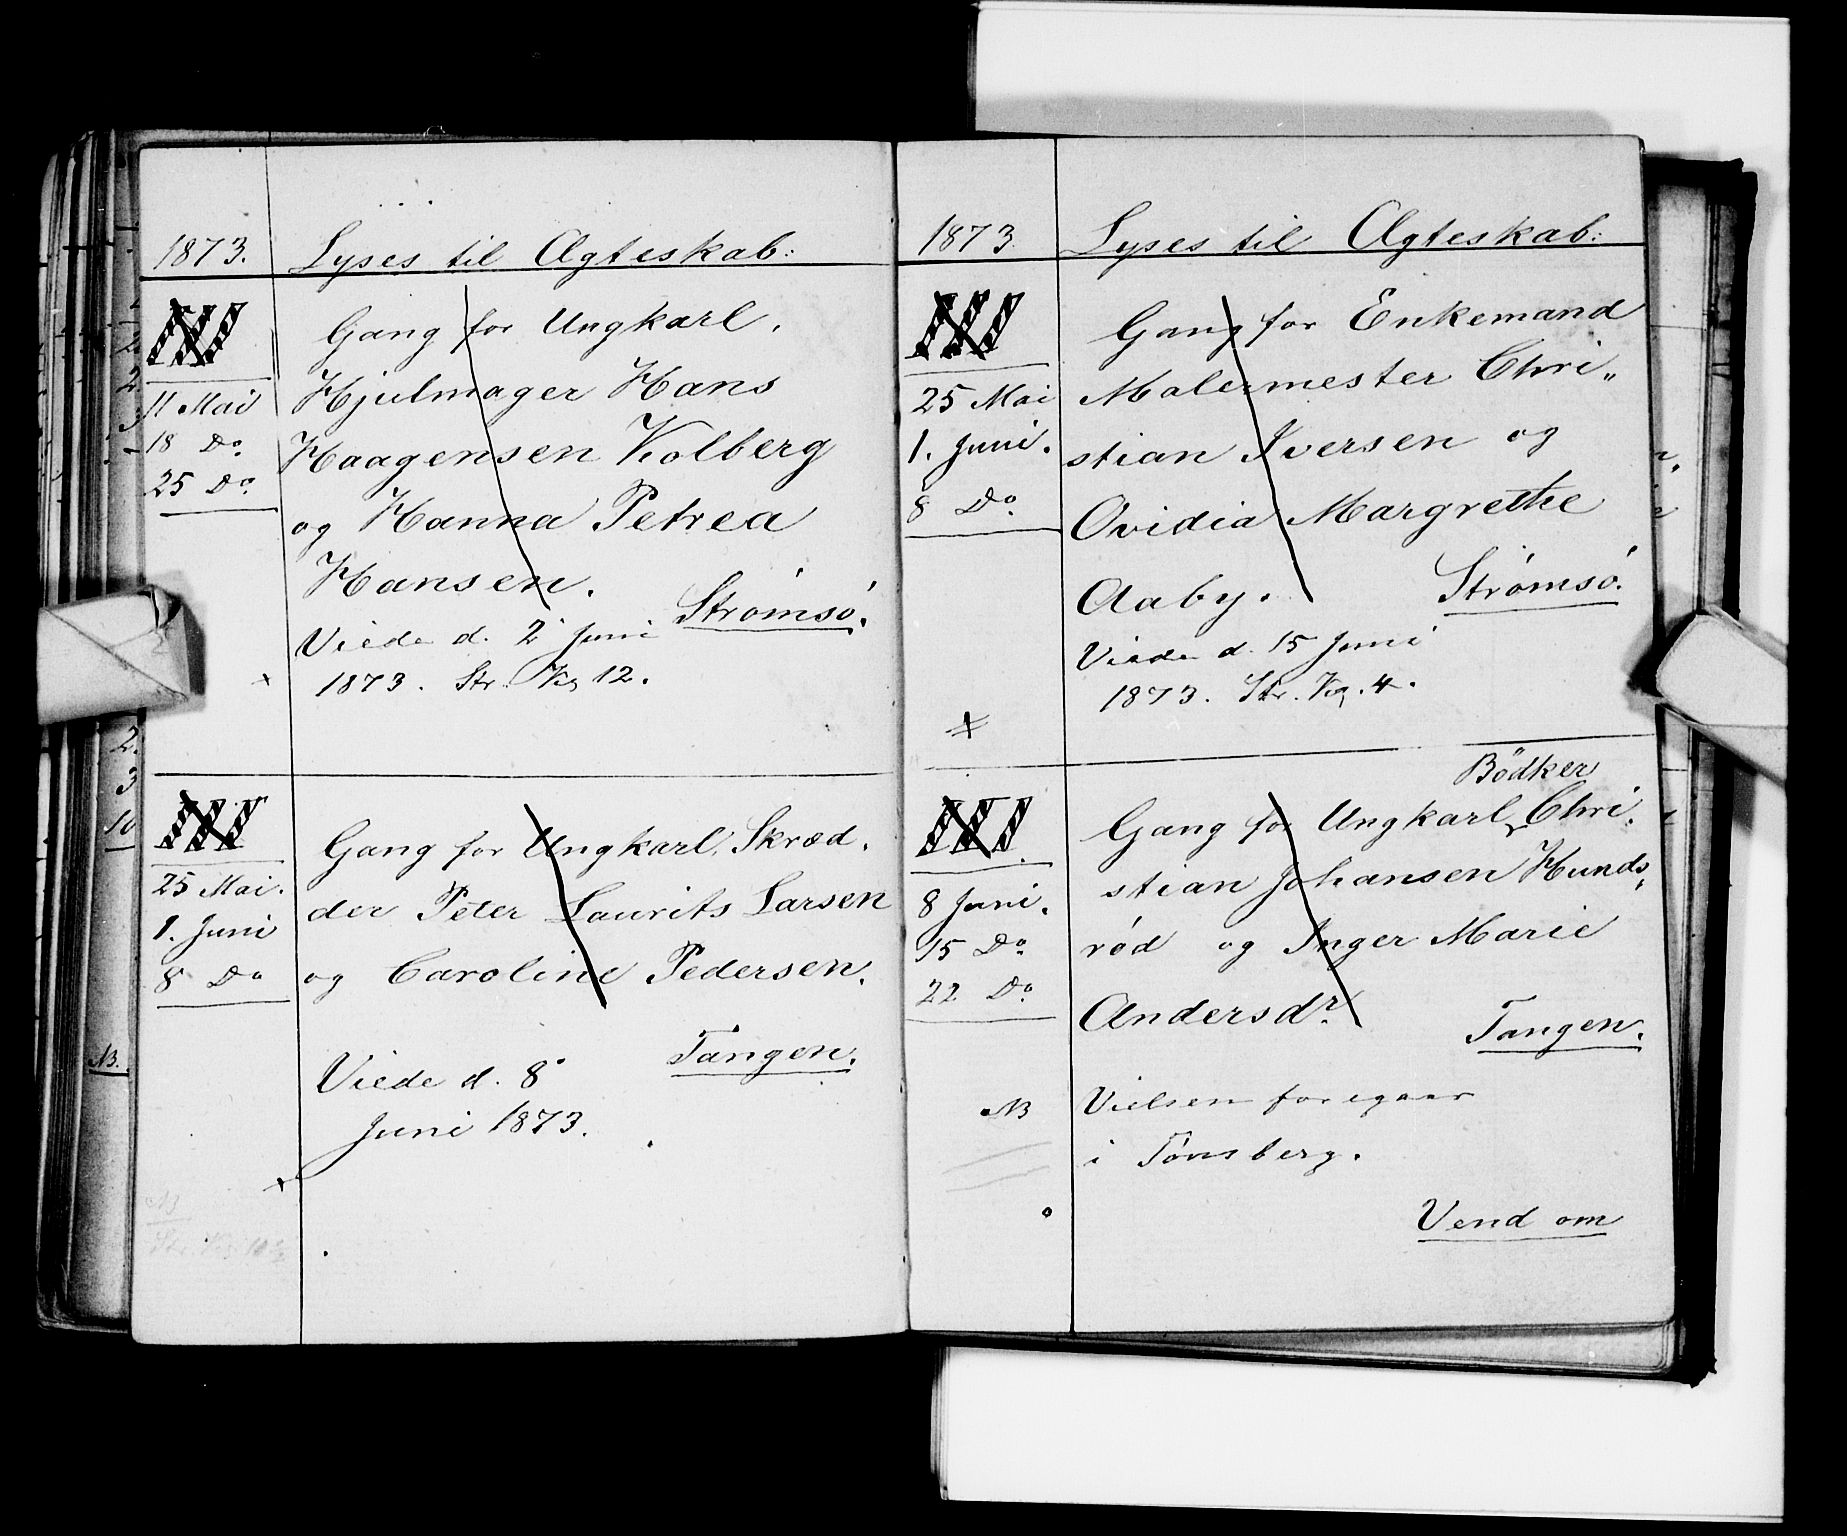 1873.
Lyses til Ægteskab:
Gang for Ungkarl,
Hjulmager Hans
Haagensen Kolberg
og Hanna Petrea
Hansen.
Strømsø.
11 Mai
18 Do
25 Do
Viede d. 2 Juni
1873. Str. Kg 12.
Gang for Ungkarl, Skræd,
der Peter Laurits Larsen
og Caroline Pedersen.
Tangen.
25 Mai.
1. Juni
8 Do
Viede d. 8
Juni 1873.
1873.
Lyses til Ægteskab:
Gang for Enkemand
Malermester Chri„
stian Iversen og
Ovidia Margrethe
Aaby.
Strømsø.
25 Mai
1. Juni.
8 Do
Viede d. 15 Juni
1873. Str. Kg. 4.
Bödker
Gang for Ungkarl, Chri,
stian Johansen Hunds„
rød og Inger Marie
Andersdr.
Tangen.
8 Juni.
15 Do
22 Do
NB
Vielsen foregaar
i Tønsberg.
Vend om